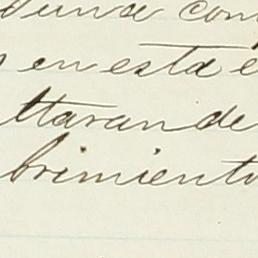 duna con
en esta e
ltaran de
brimiento